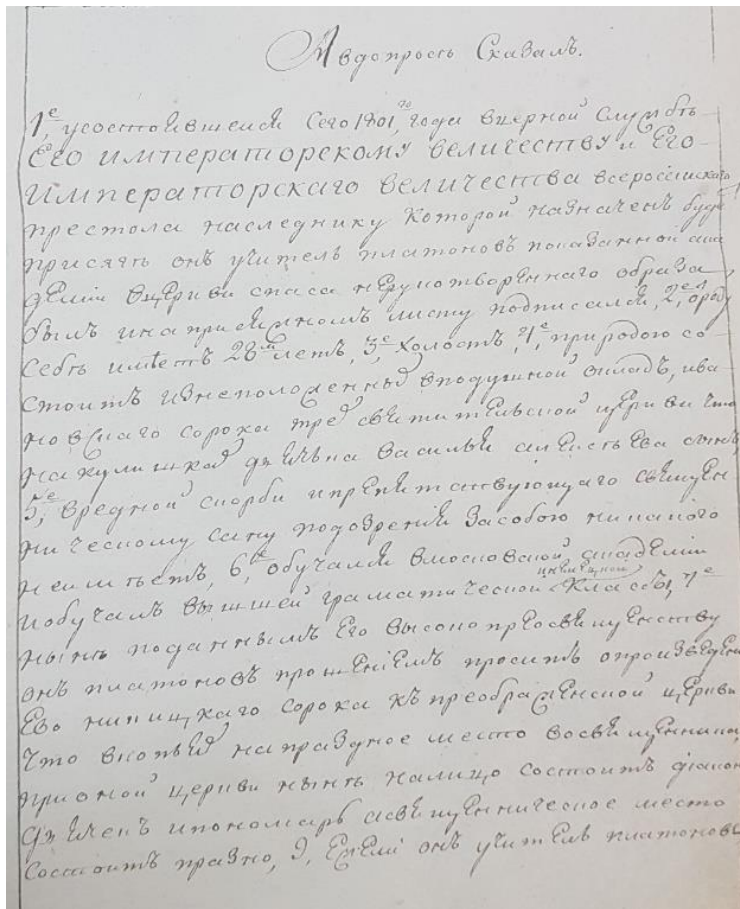 А в допросѣ Сказалъ.
1е, у состоявшейся Сего 1801го года в верной Службѣ
Его императорскому величеству и Его
императорскаго величества всероссийскаго
престола наследнику которой назначенъ будетъ
присягѣ онъ учитель платоновъ показанной ака
демiи в церкви спаса нерукотвореннаго образа
былъ и на присяжномъ листу подписался, 2е, от роду
Себѣ имѣетъ 28м летъ, 3е, холостъ, 4е, природою со
стоитъ из неположенныхъ в подушной окладъ, ива
новскаго сорока трех святительской церкви что
на кулишкахъ дьячка василья алексѣева сынъ,
5е, вредной скорби и препятствующаго священ
ническому сану подозрения за собою никакого
не имѣетъ, 6е, обучался в московской академiи
и обучалъ вышшей грамматической класъ, 7е
нынѣ поданнымъ Его высокопреосвященству
онъ платоновъ прошенiемъ проситъ о произведенiи
Ево никицкаго сорока къ преображенской церкви
что в копьѣ на праздное место во священника,
при оной церкви нынѣ налицо состоитъ дiаконъ
дьячекъ и пономарь а священническое место
состоитъ празно, 9, Ежели онъ учитель платоновъ